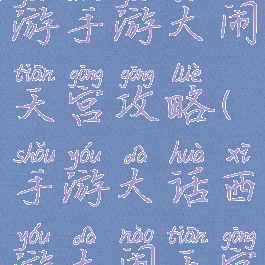 游手游大闹
tiān gōng gōng lüè
天宫攻略(
shǒu yóu dà huà xī
手游大话西
yóu dà nào tiān gōng
游大闹天宫